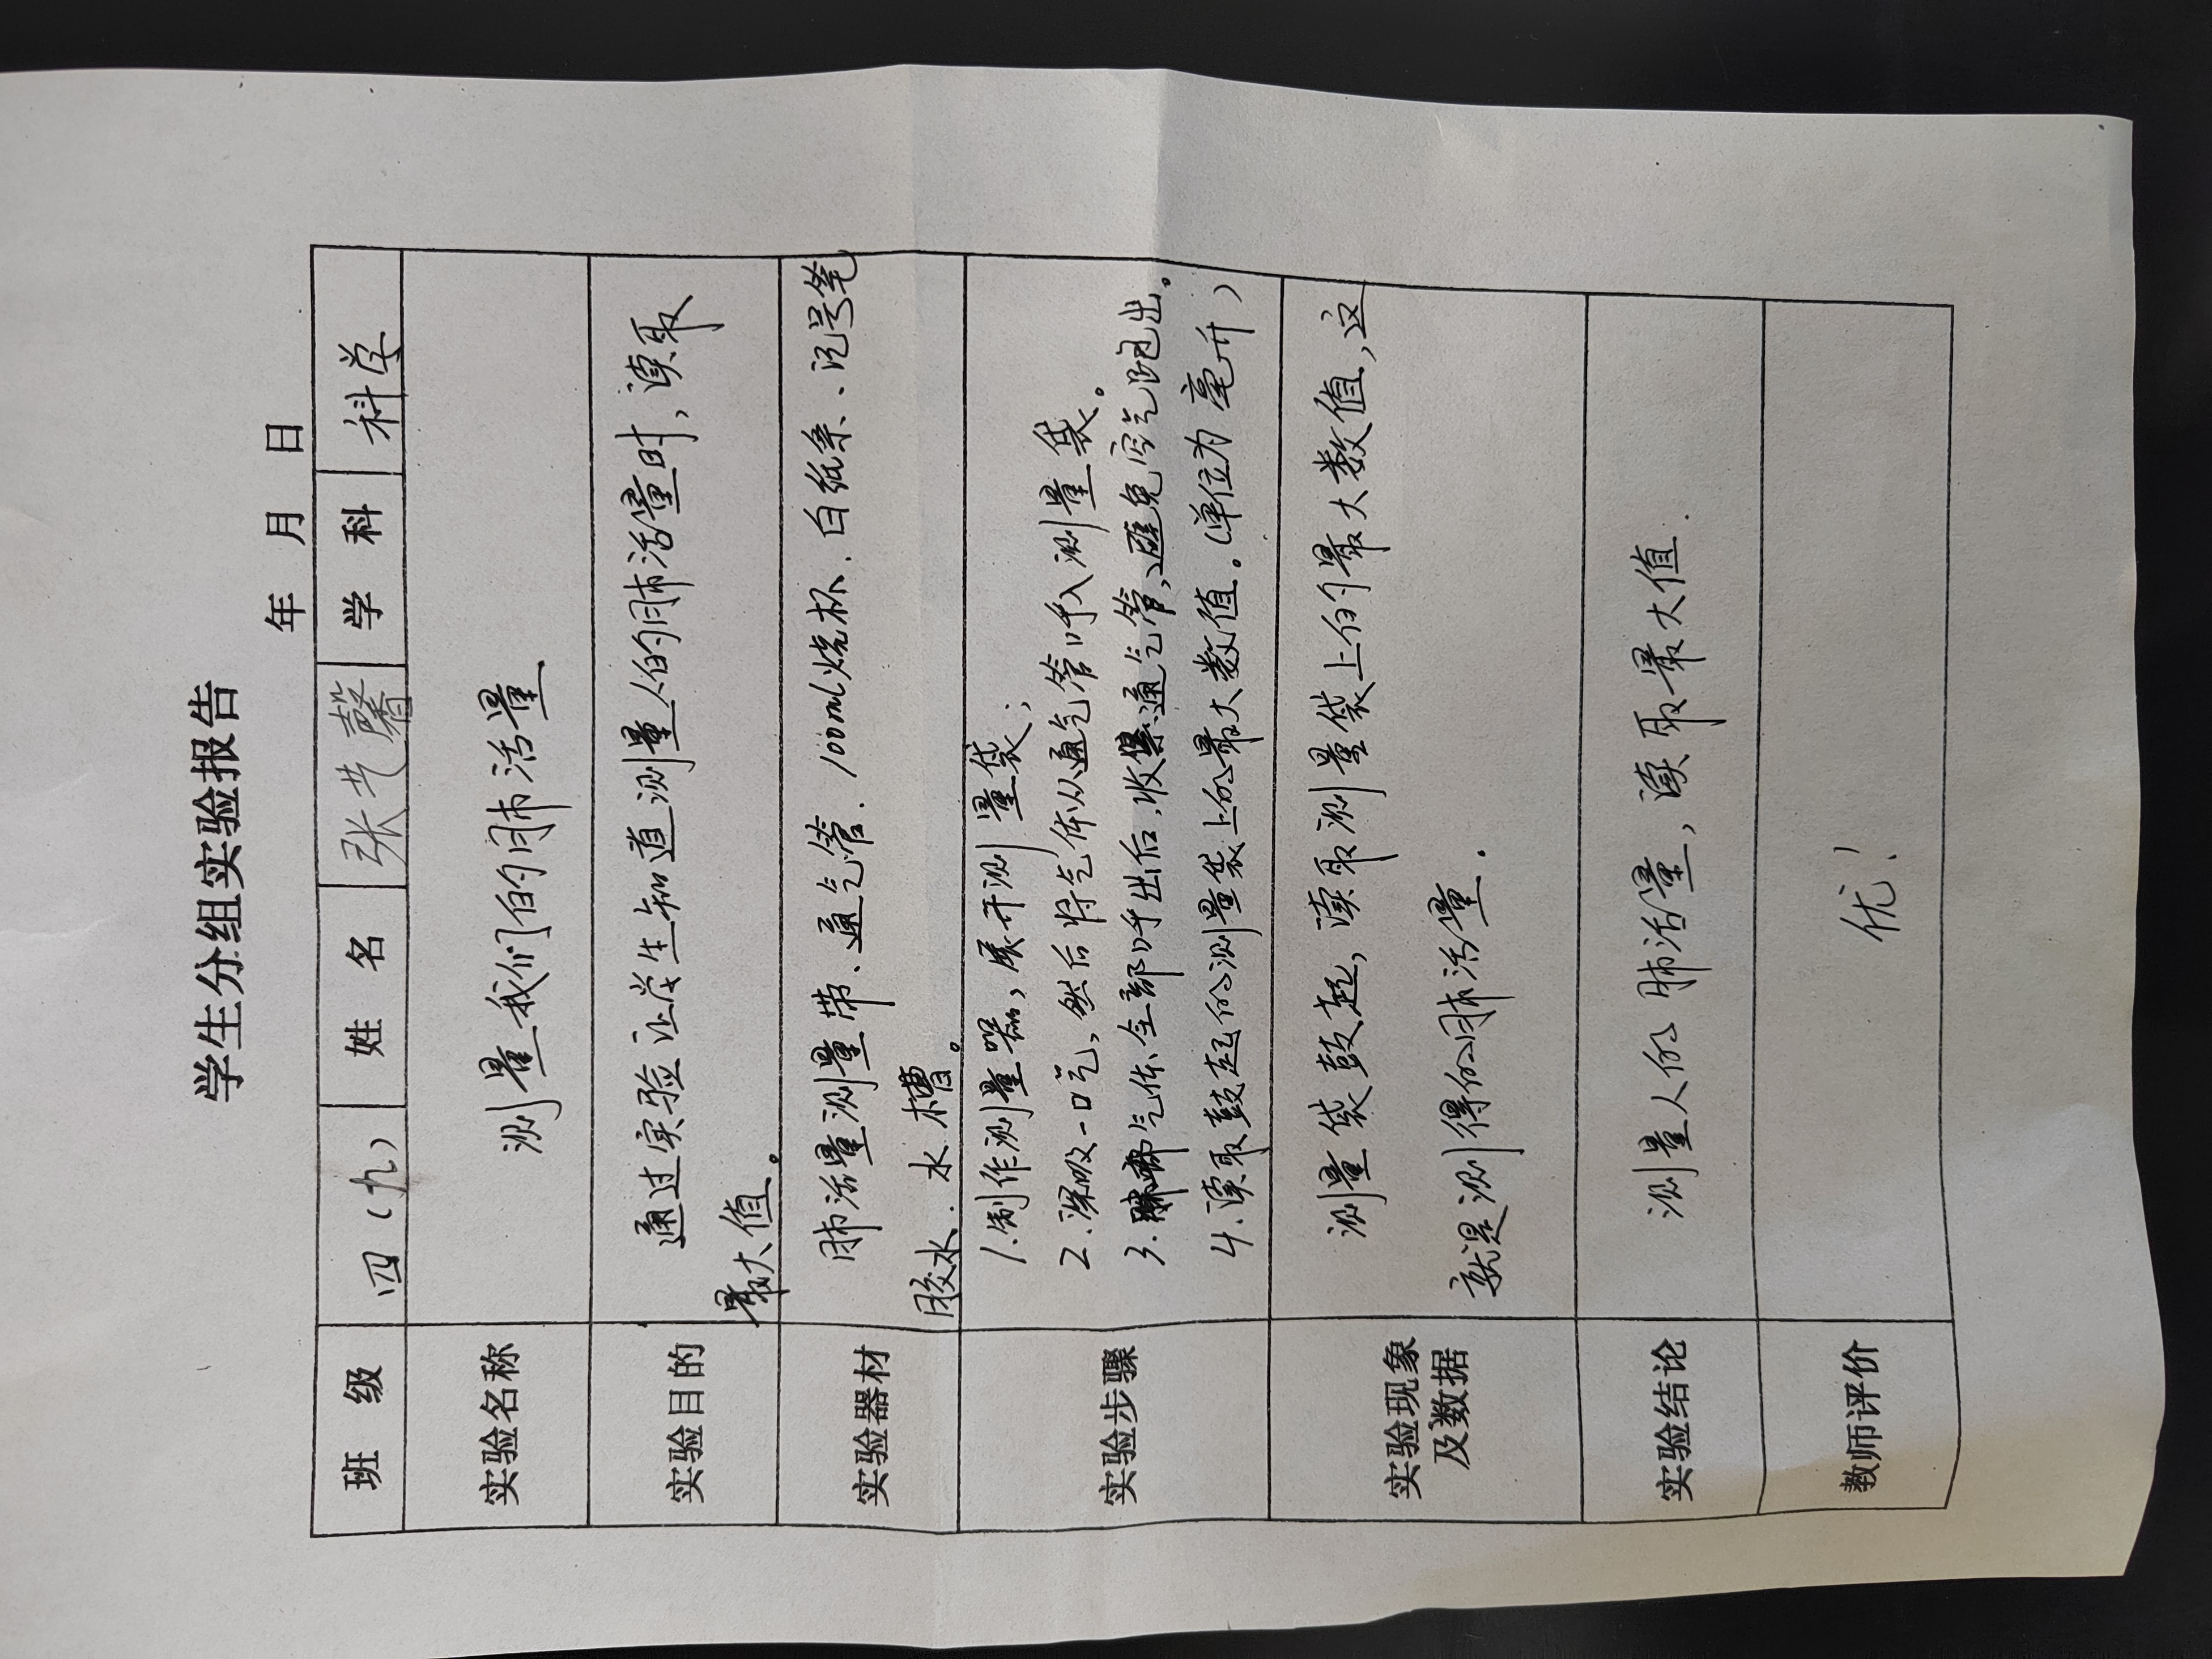 学生分组实验报告
年 月 日
班 级 四（九） 姓 名 张艺馨 学 科 科学
实验名称 测量我们的肺活量
实验目的 通过实验让学生知道测量人的肺活量时，读取
最大值。
实验器材 肺活量测量带、通气管、100ml烧杯、白纸条、记号笔
胶水、水、水槽。
实验步骤 1.制作测量器，展开测量袋；
2.深吸一口气，然后将气体从通气管呼入测量袋。
3.气体全部呼出后，收紧通气管，避免空气跑出。
4.读取鼓起的测量袋上的最大数值。（单位为毫升）
实验现象
及数据 测量袋鼓起，读取测量袋上的最大数值，这
就是测得的肺活量.
实验结论 测量人的肺活量，读取最大值.
教师评价 优！